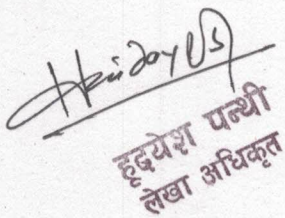 हृदयेश पन्थी
लेखा अधिकृत